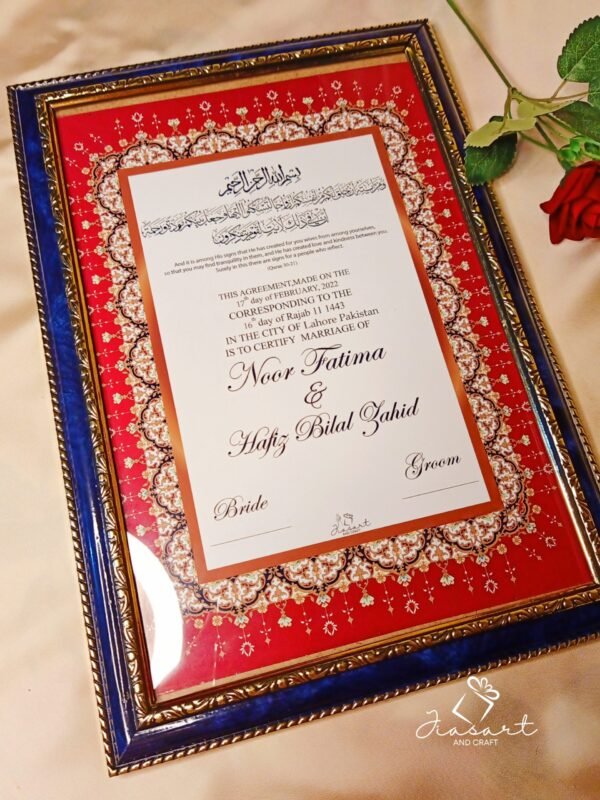 بسم الله الرحمن الرحيم
ومن آياته أن خلق لكم من أنفسكم أزواجا لتسكنوا إليها وجعل بينكم مودة ورحمة
إن في ذلك لآيات لقوم يتفكرون
And it is among His signs that He has created for you wives from among yourselves,
so that you may find tranquility in them, and He has created love and kindness between you.
Surely in this there are signs for a people who reflect.
(Quran, 30-21)
THIS AGREEMENT,MADE ON THE
17th day of FEBRUARY, 2022
CORRESPONDING TO THE
16th day of Rajab 11 1443
IN THE CITY OF Lahore Pakistan
IS TO CERTIFY MARRIAGE OF
Noor Fatima
&
Hafiz Bilal Zahid
Bride
Groom
Jiasart
AND CRAFT
Jiasart
AND CRAFT